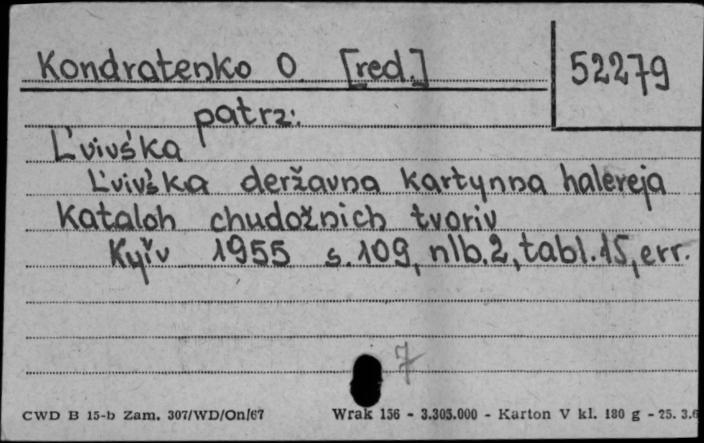 Kondratenko O. [red.]
52279
patrz:
L'vivśka
L'vivśka deržavna kartynna halereja
Kataloh chudožnich tvoriv
Kyïv 1955 s.109, nlb.2, tabl.15, err.
7
CWD B 15-b Zam. 307/WD/On/67 Wrak 156 - 3.305.000 - Karton V kl. 180 g - 25. 3.6